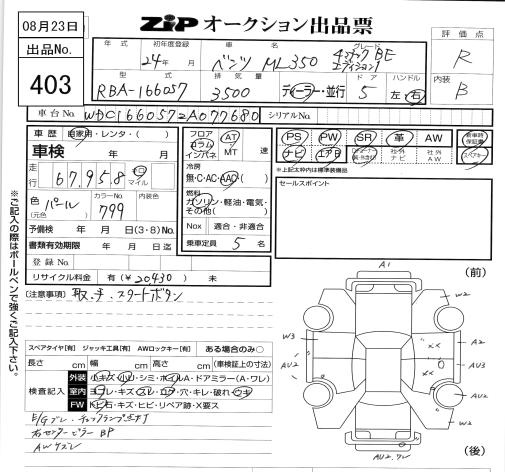 08月23日
出品No.
403
ZiP オークション出品票
評価点
R
内装
B
年式 初年度登録 車名 グレード
24年 ベンツ ML350 4マチック BE
型式 排気量 ドア ハンドル
RBA-166057 3500 ディーラー・並行 5 左・右
車台No. WDC1660572A077680 シリアルNo.
車歴 自家用・レンタ・( )
車検 年 月
走行 67,958 キロ マイル
色(元色) パール カラーNo. 799 内装色
予備検 年 月 日(3・8)No.
書類有効期限 年 月 日迄
登録No.
リサイクル料金 有(¥20,430) 未
フロア コラム インパネ AT MT 速
冷房 無・C・AC・AAC
燃料 ガソリン・軽油・電気・その他( )
Nox 適合・非適合
乗車定員 5 名
PS PW SR 革 AW 新車時保証書
ナビ エアB 社外ナビ 社外AW スペアキー
※上記太枠内は標準装備品
セールスポイント
[注意事項] 取、手、スタートボタン
※ご記入の際はボールペンで強くご記入下さい。
スペアタイヤ[有] ジャッキ工具[有] AWロックキー[有] ある場合のみ○
長さ cm 幅 cm 高さ cm (車検証上の寸法)
検査記入
外装 小キズ・小U・シミ・ホイルA・ドアミラー(A・ワレ)
室内 ヨゴレ・キズ・スレ・コゲ・穴・キレ・破れ・ウキ
FW トビ石・キズ・ヒビ・リペア跡・X要ス
右センターピラー BP
AWキズ
(前)
A1
W2
W3
A2
AU2
AU3
AU2
W2
AU2.ワレ
(後)